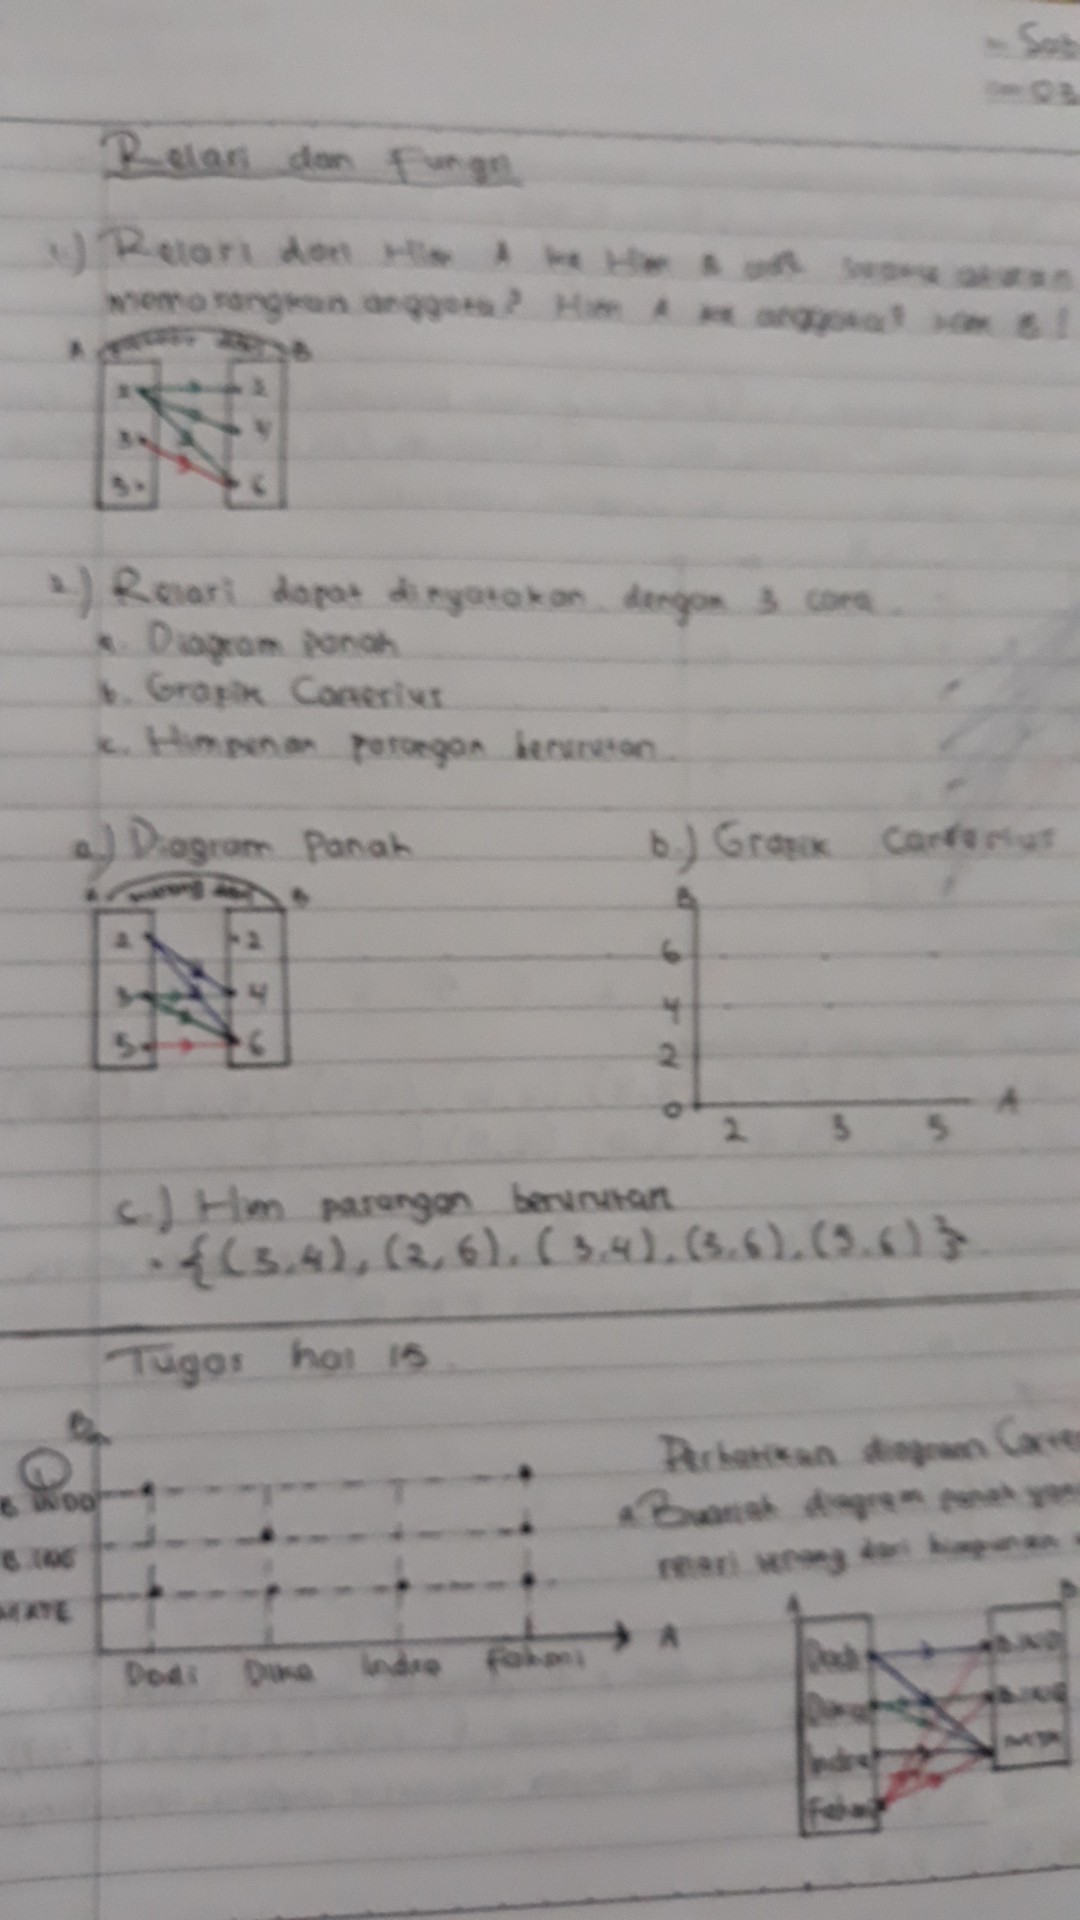 - Sab
03
Relasi dan Fungsi
1.) Relasi dari Him A ke Him B adl aturan
memasangkan anggota² Him A ke anggota² Him B!
A B
2 2
3 4
5 6
2.) Relasi dapat dinyatakan dengan 3 cara.
a. Diagram panah
b. Grapik Cartesius
c. Himpunan pasangan berurutan.
a.) Diagram Panah
b.) Grapik Cartesius
A kurang dari B
2 2
3 4
5 6
B
6
4
2
0 2 3 5 A
c.) Him pasangan berurutan
= {(3,4), (2,6), (3,4), (3,6), (5,6)}
Tugas hal 15
B
1
B. INDO
B. ING
MATE
Dodi Dima Indra Fahmi A
Perhatikan diagram Carte
a. Buatlah diagram panah yang
relasi senang dari himpunan
A B
Dodi B.IND
Dima B.ING
Indra MTK
Fahmi